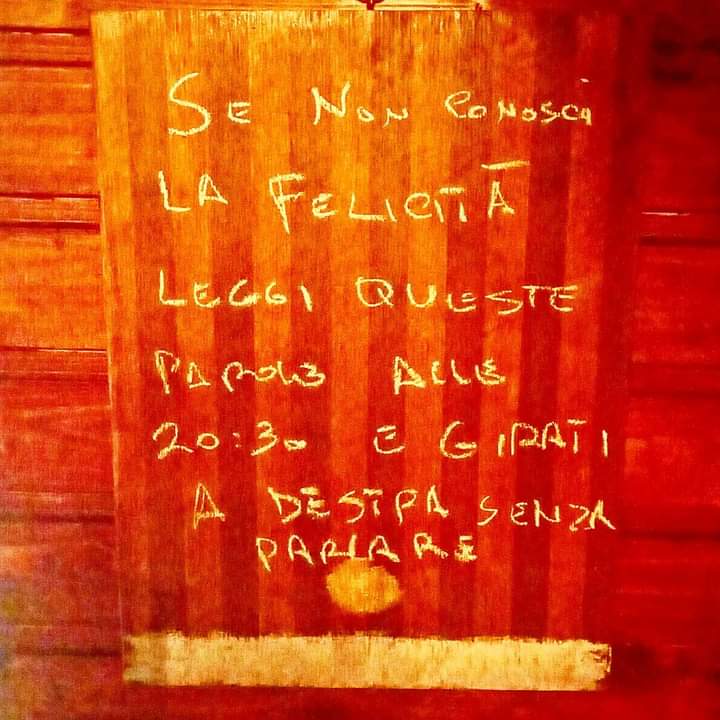 SE NON CONOSCI
LA FELICITÀ
LEGGI QUESTE
PAROLE ALLE
20:30 E GIRATI
A DESTRA SENZA
PARLARE